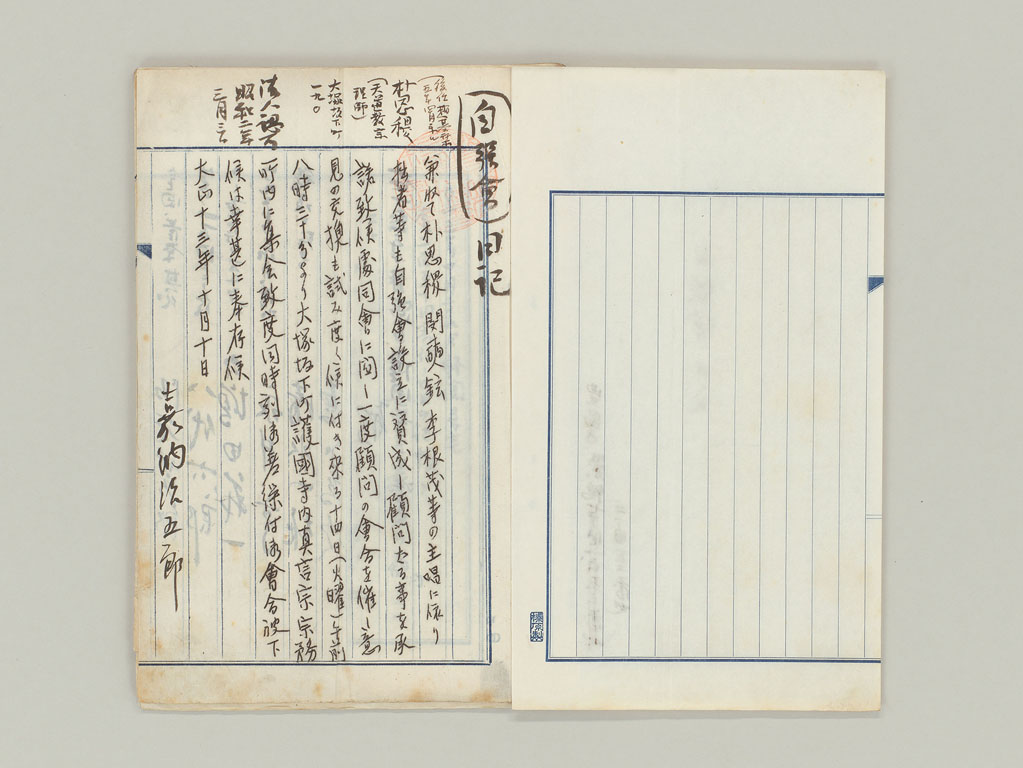 自強會日記
朴思稷
（天道教宗
理師）
大塚坂下町
一九〇
法人認可
昭和二年
三月三
兼ねて朴思稷 閔奭鉉 李根茂等の主唱に依り
拙者等も自強會設立に賛成し顧問たる事を承
諾致候處同會に関し一度顧問の會合を催し意
見の交換も試み度く候に付き来る十四日（火曜）午前
八時三十分より大塚坂下町護國寺内真言宗宗務
所内に集会致度同時刻御差繰付御會合被下
候はゞ幸甚に奉存候
大正十三年十月十日
嘉納治五郎